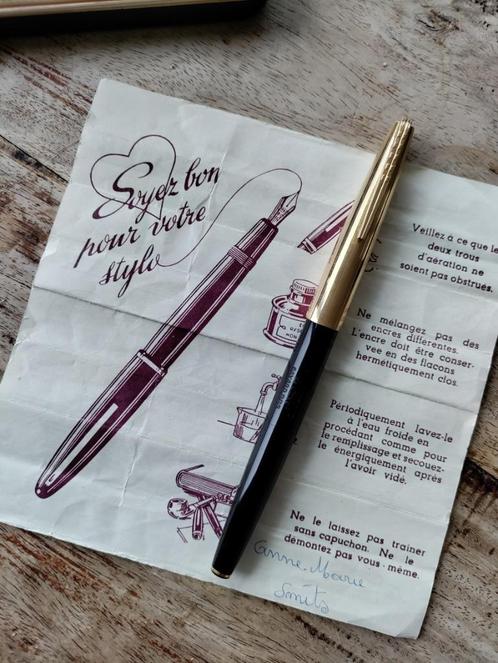 Soyez bon
pour votre
stylo
Veillez à ce que le
deux trous
d'aération ne
soient pas obstrués.
Ne mélangez pas des
encres différentes.
L'encre doit être conser-
vee en des flacons
hermétiquement clos.
Périodiquement lavez-le
à l'eau froide en
procédant comme pour
le remplissage et secouez-
le énergiquement après
l'avoir vidé.
Ne le laissez pas trainer
sans capuchon. Ne le
démontez pas vous-même.
Anne-Marie
Smits